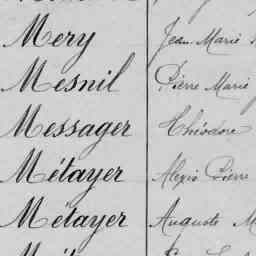 Mery Jean Marie
Mesnil Pierre Marie
Messager Théodore
Métayer Alexis Pierre
Métayer Auguste M